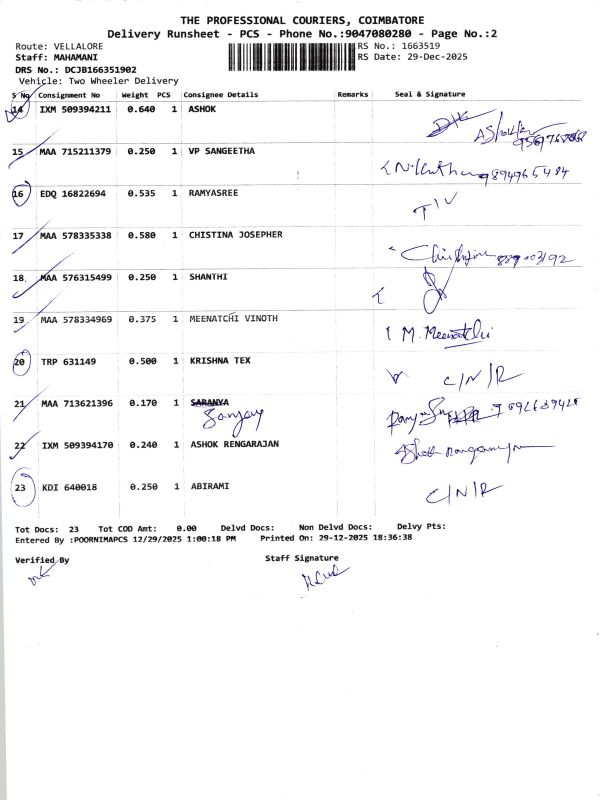 THE PROFESSIONAL COURIERS, COIMBATORE
Delivery Runsheet - PCS - Phone No.:9047080280 - Page No.:2
Route: VELLALORE
Staff: MAHAMANI
DRS No.: DCJB166351902
Vehicle: Two Wheeler Delivery
RS No.: 1663519
RS Date: 29-Dec-2025
S No Consignment No Weight PCS Consignee Details Remarks Seal & Signature
14 IXM 509394211 0.640 1 ASHOK
15 MAA 715211379 0.250 1 VP SANGEETHA
16 EDQ 16822694 0.535 1 RAMYASREE
17 MAA 578335338 0.580 1 CHISTINA JOSEPHER
18 MAA 576315499 0.250 1 SHANTHI
19 MAA 578334969 0.375 1 MEENATCHI VINOTH M. Meenatchi
20 TRP 631149 0.500 1 KRISHNA TEX C/N/R
21 MAA 713621396 0.170 1 SARANYA
Sanjay
22 IXM 509394170 0.240 1 ASHOK RENGARAJAN
23 KDI 640018 0.250 1 ABIRAMI C/N/R
Tot Docs: 23 Tot COD Amt: 0.00 Delvd Docs: Non Delvd Docs: Delvy Pts:
Entered By :POORNIMAPCS 12/29/2025 1:00:18 PM Printed On: 29-12-2025 18:36:38
Verified By Staff Signature